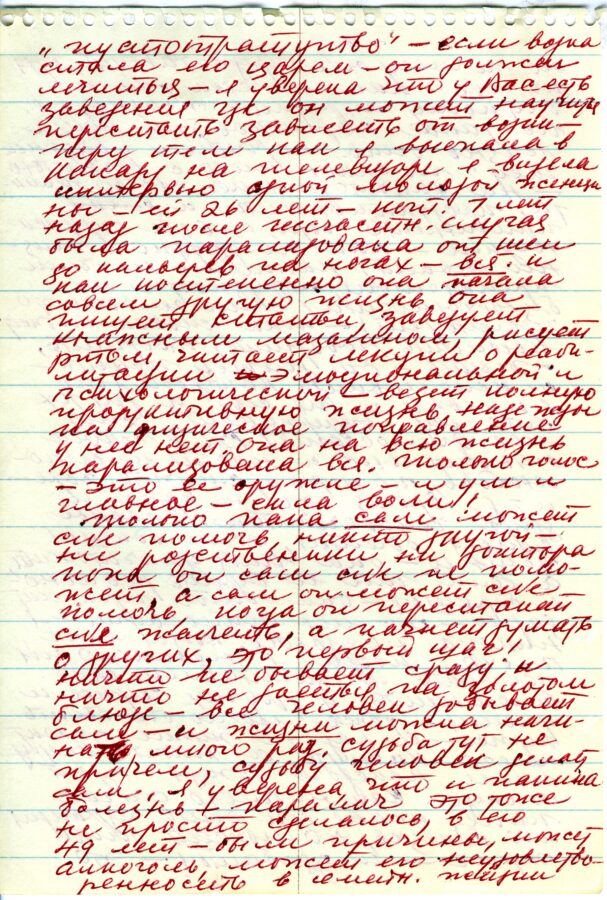 „пустотратуптво" – если водка
стала его царем – он должен
лечиться – я уверена что у Вас есть
заведения где он может научиться
перестать зависеть от водки –
перед тем как я выехала в
Канаду на телевизоре я видела
интервью одной молодой женщи
ны – ей 26 лет – кот. 7 лет
назад после несчастн. случая
была парализована от шеи
до пальцев на ногах – вся. и
как постепенно она начала
совсем другую жизнь она
пишет статьи заведует
книжным магазином, рисует
ртом, читает лекции о реаби-
литации эмоциональной и
психологической – ведет полную
продуктивную жизнь, надежды
на физическое поправление
у нее нет, она на всю жизнь
парализована вся. только голос
– это ее оружие – и ум и
главное – сила воли!
Только папа сам может
себе помочь, никто другой –
ни родственники ни доктора
пока он сам себе не помо-
жет, а сам он может себе
помочь, когда он перестанет
себя жалеть, а начнет думать
о других, это первый шаг!
ничто не бывает сразу и
ничто не дается на золотом
блюде – все человек добывает
сам – и жизни можна начи-
нать много раз. судьба тут не
причем, судьбу человек делает
сам, я уверена что и папина
болезнь – паралич это тоже
не просто сделалось, в его
49 лет – были причины, может
алкоголь, может его неудовлетво-
ренность в семейн. жизни